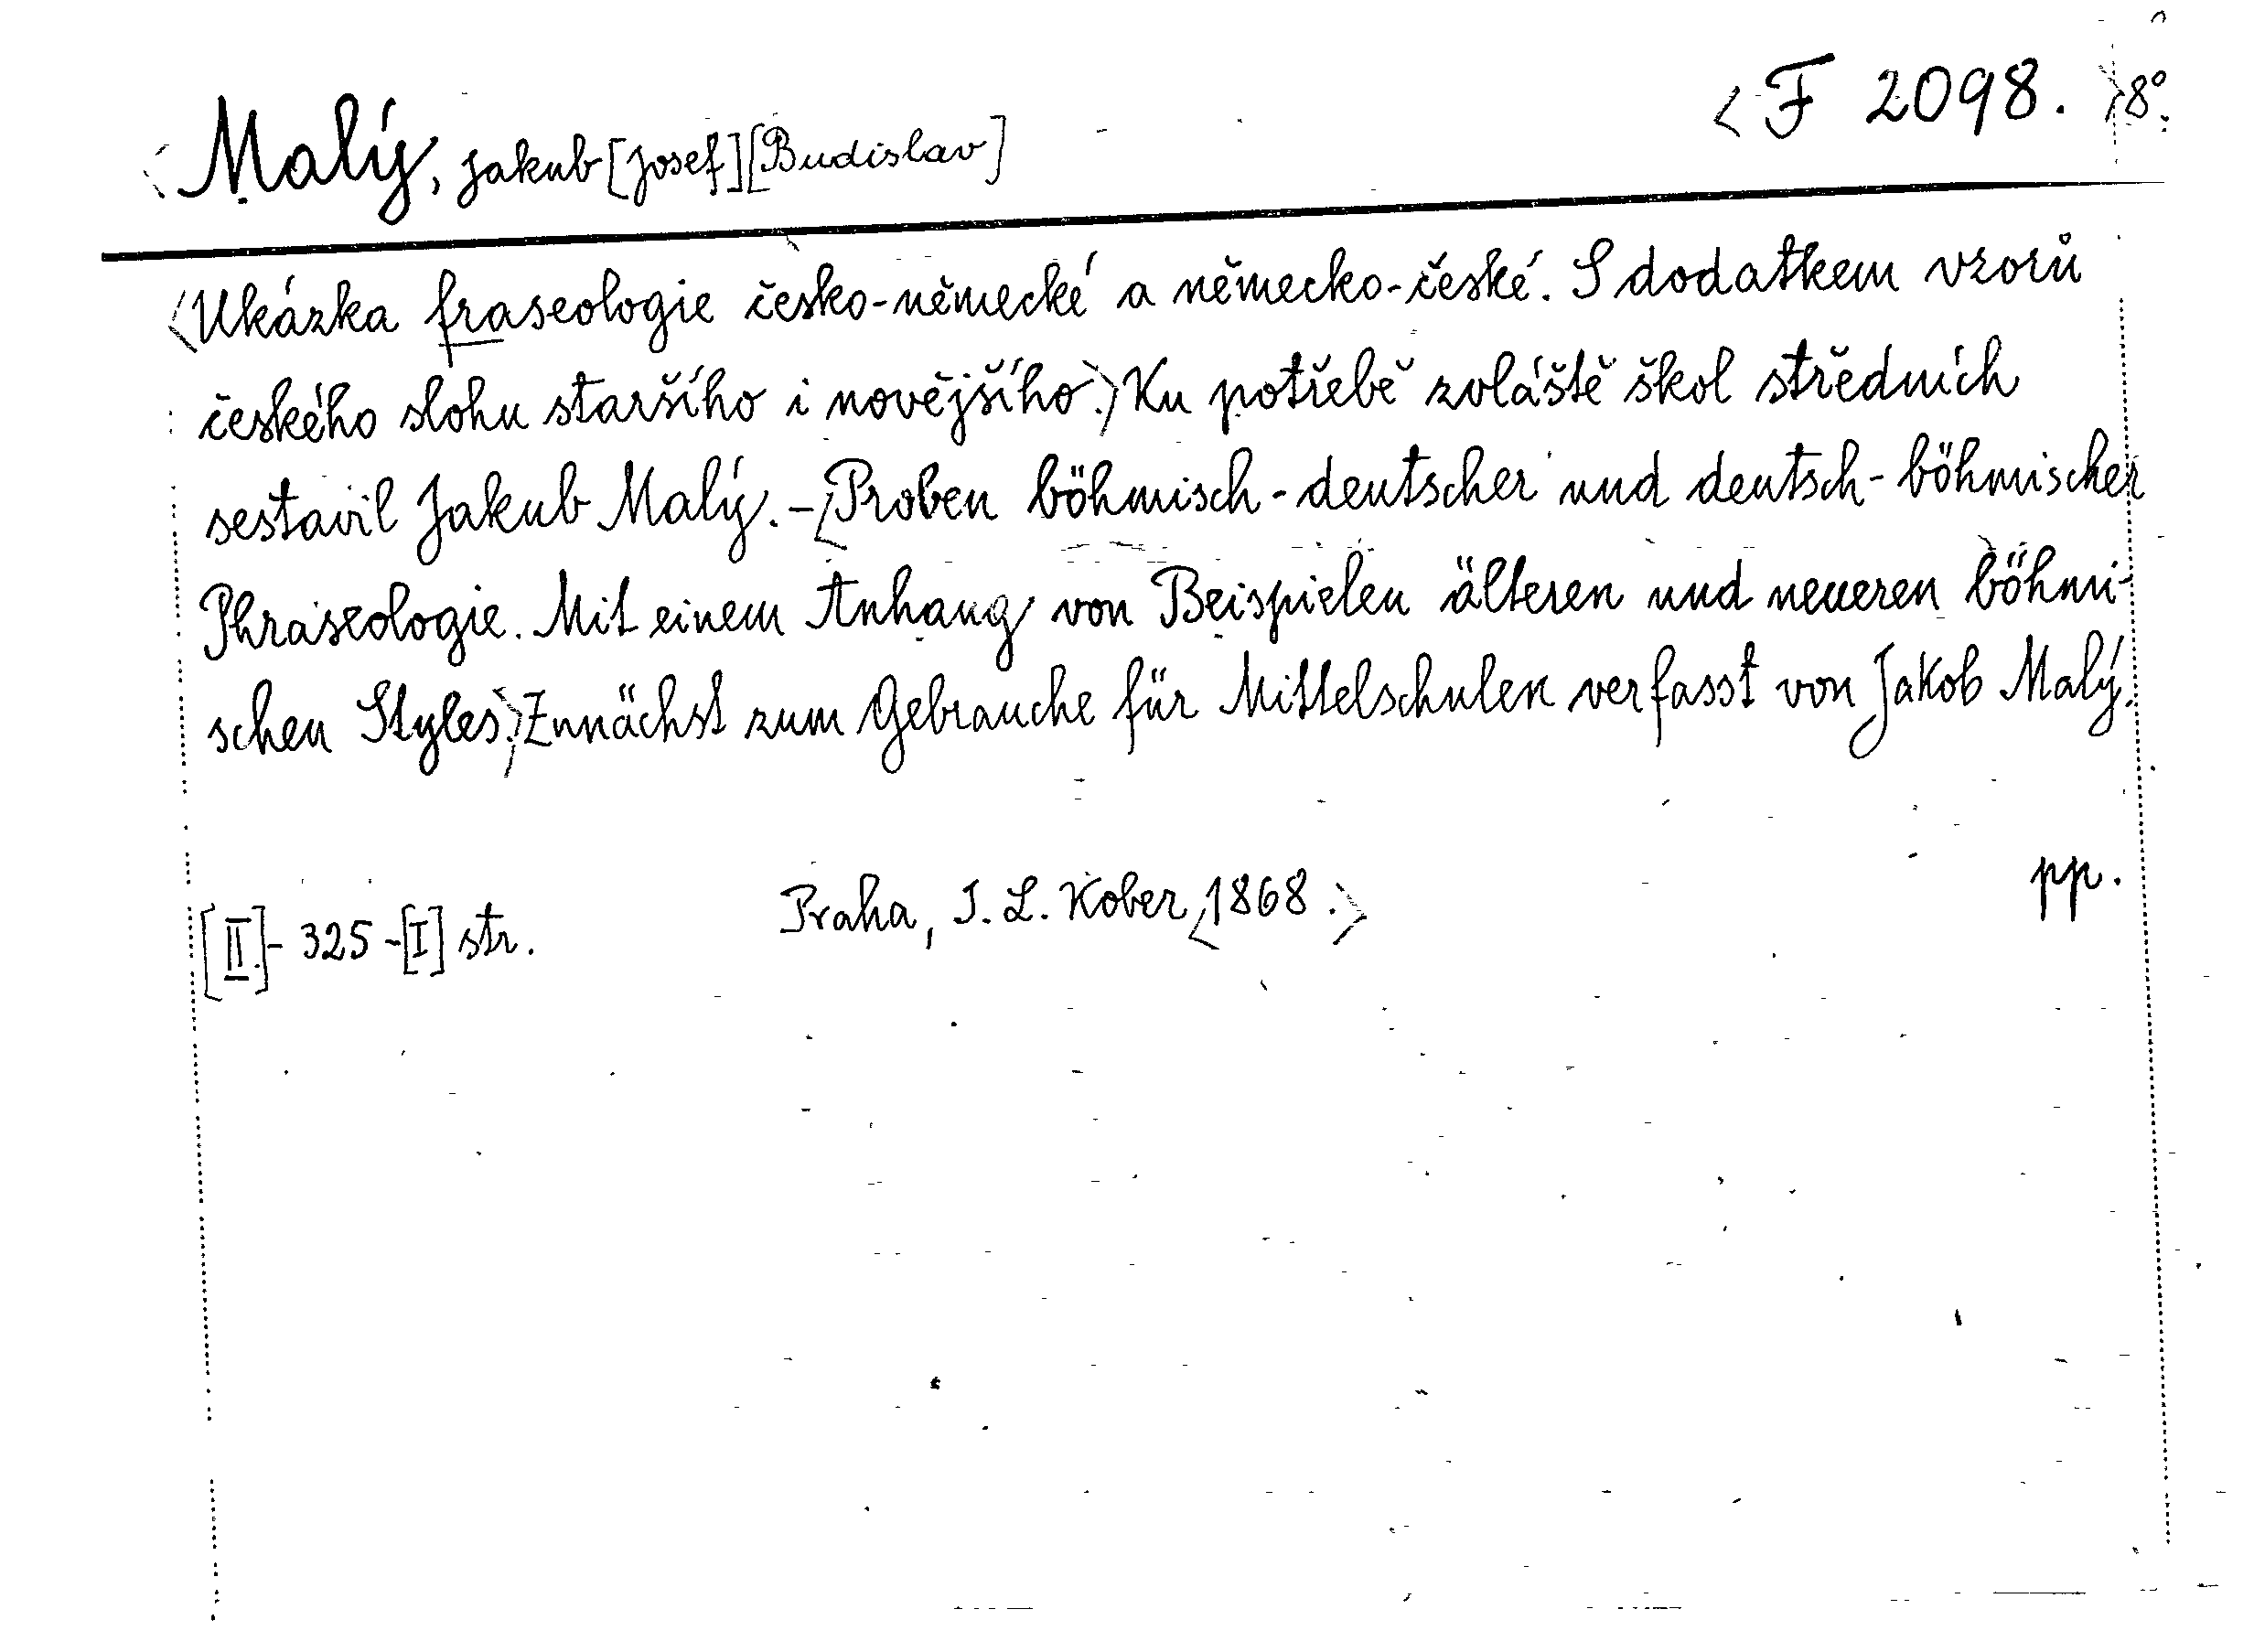 <F 2098.>8°.
Malý, Jakub [Josef][Budislav]
<Ukázka fraseologie česko-německé a německo-české. S dodatkem vzorů
českého slohu staršího i novějšího.> Ku potřebě zvláště škol středních
sestavil Jakub Malý. - <Proben böhmisch-deutscher und deutsch-böhmischer
Phraseologie. Mit einem Anhang von Beispielen älteren und neueren böhmi-
schen Styles.> Zunächst zum Gebrauche für Mittelschulen verfasst von Jakob Malý.
pp.
[II]-325-[I] str. Praha, I. L. Kober, <1868.>